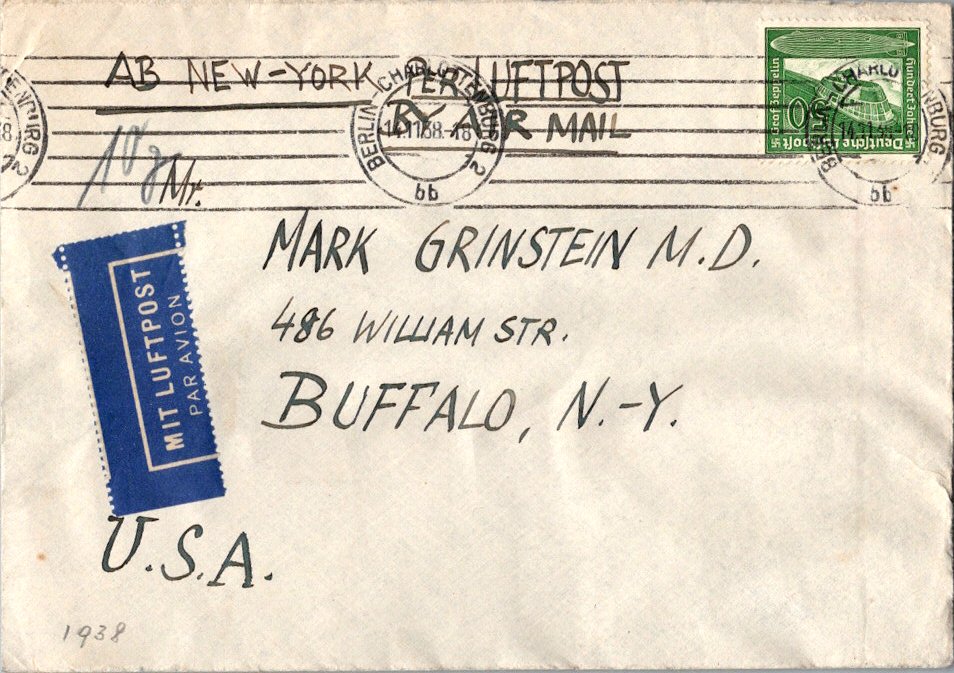 AB NEW-YORK PER LUFTPOST
BY AIR MAIL
BERLIN-CHARLOTTENBURG 2
14.11.38.-18
bb
Graf Zeppelin
Hundert Jahre
Deutsche Reichspost
50
BERLIN-CHARLOTTENBURG
14.11.38
bb
NBURG 2
10g
Mr.
MARK GRINSTEIN M.D.
486 WILLIAM STR.
BUFFALO, N.-Y.
MIT LUFTPOST
PAR AVION
U.S.A.
1938